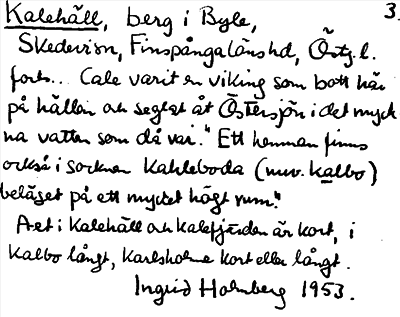 3.
Kalehäll, berg i Byle,
Skedevi sn, Finspångaläns hd, Östg. l.
forts... Cale varit en viking som bott här
på hällen och seglat åt Östersjön i det myck-
na vatten som då var." Ett hemman finns
också i socknen Kahleboda (nuv. Kalbo)
beläget på ett mycket högt rum."
A-et i Kalehäll och Kalefjärden är kort, i
Kalbo långt, Karlsholme kort eller långt.
Ingrid Holmberg 1953.